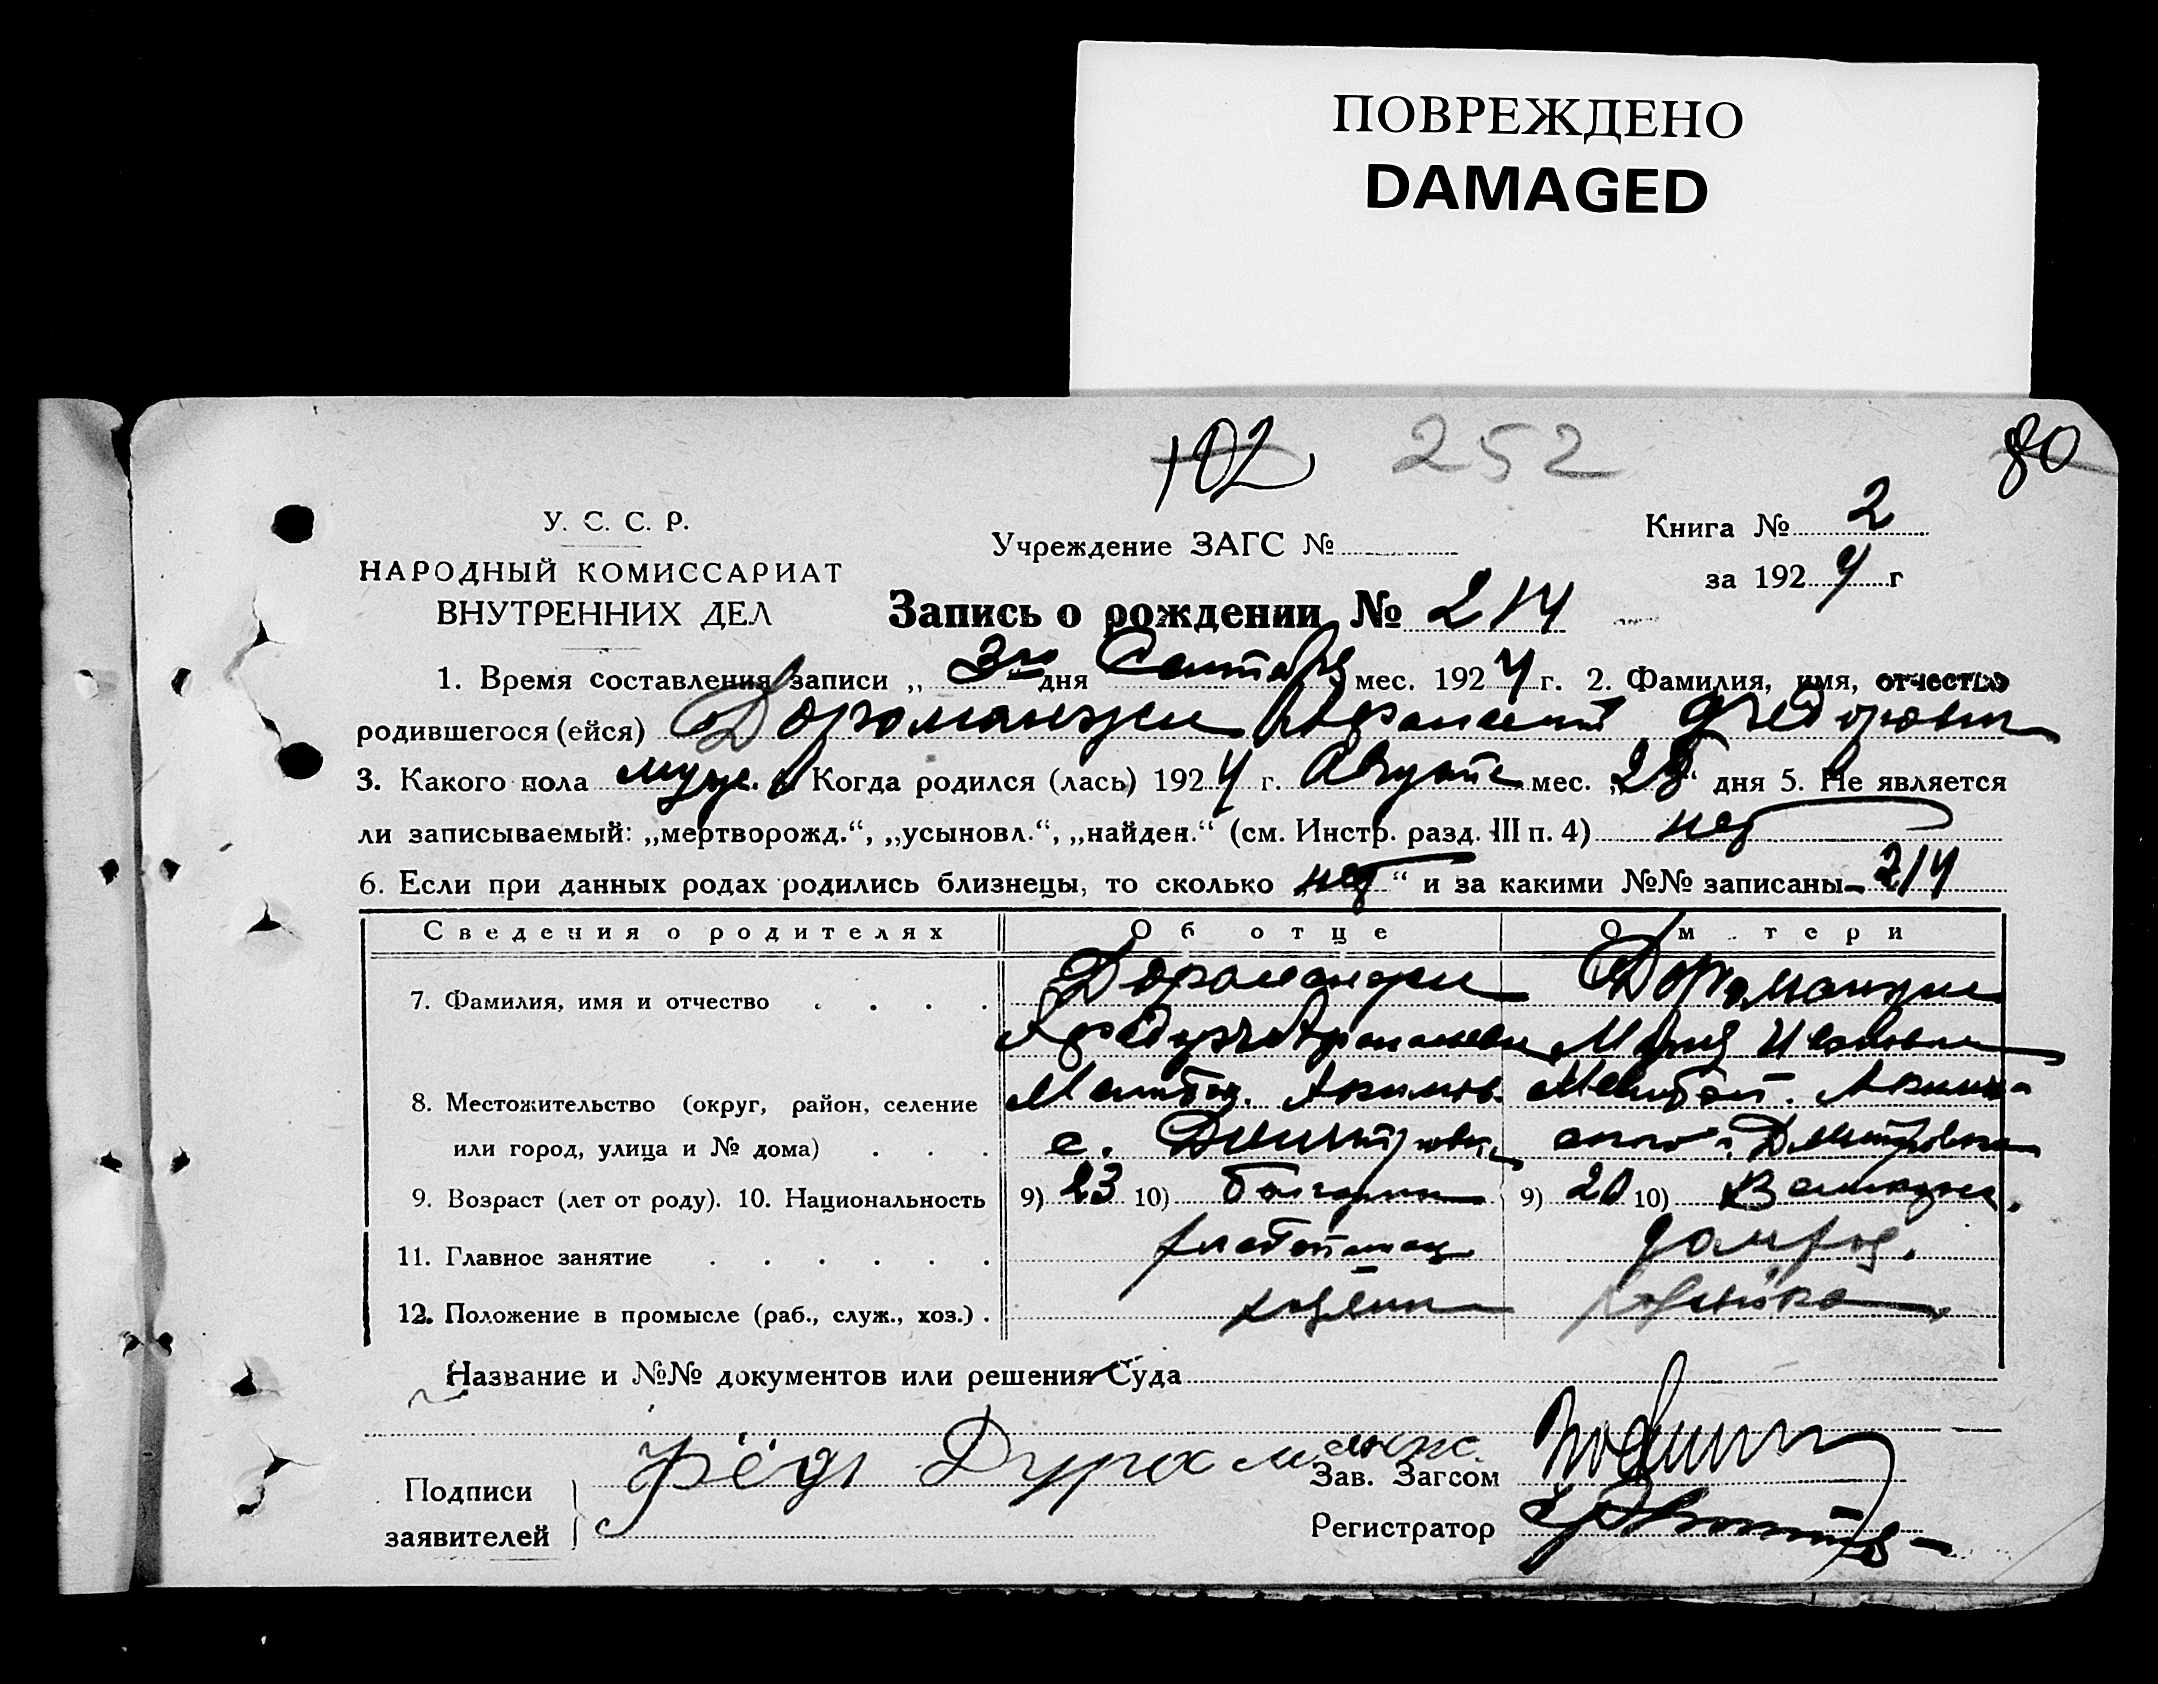 ПОВРЕЖДЕНО
DAMAGED
102 252 80
У. С. С. Р.
НАРОДНЫЙ КОМИССАРИАТ
ВНУТРЕННИХ ДЕЛ
Учреждение ЗАГС №
Книга № 2
за 1924 г
Запись о рождении № 214
1. Время составления записи „ 3го “ дня Сентября мес. 1924 г. 2. Фамилия, имя, отчество
родившегося (ейся) Дороманжи Афанасий Федорович
3. Какого пола муж. Когда родился (лась) 1924 г. Августа мес. „28“ дня 5. Не является
ли записываемый: „мертворожд.“, „усыновл.“, „найден.“ (см. Инстр. разд. III п. 4) нет
6. Если при данных родах родились близнецы, то сколько „нет“ и за какими №№ записаны 214
Сведения о родителях Об отце О м тери
7. Фамилия, имя и отчество Дороманжи Дороманжи
Мария Ивановна
8. Местожительство (округ, район, селение
или город, улица и № дома) с. Дмитровка
9. Возраст (лет от роду). 10. Национальность 9) 23 10) болгарин 9) 20 10)
11. Главное занятие
12. Положение в промысле (раб., служ., хоз.) хозяин хозяйка
Название и №№ документов или решения Суда
Подписи
заявителей
Зав. Загсом
Регистратор